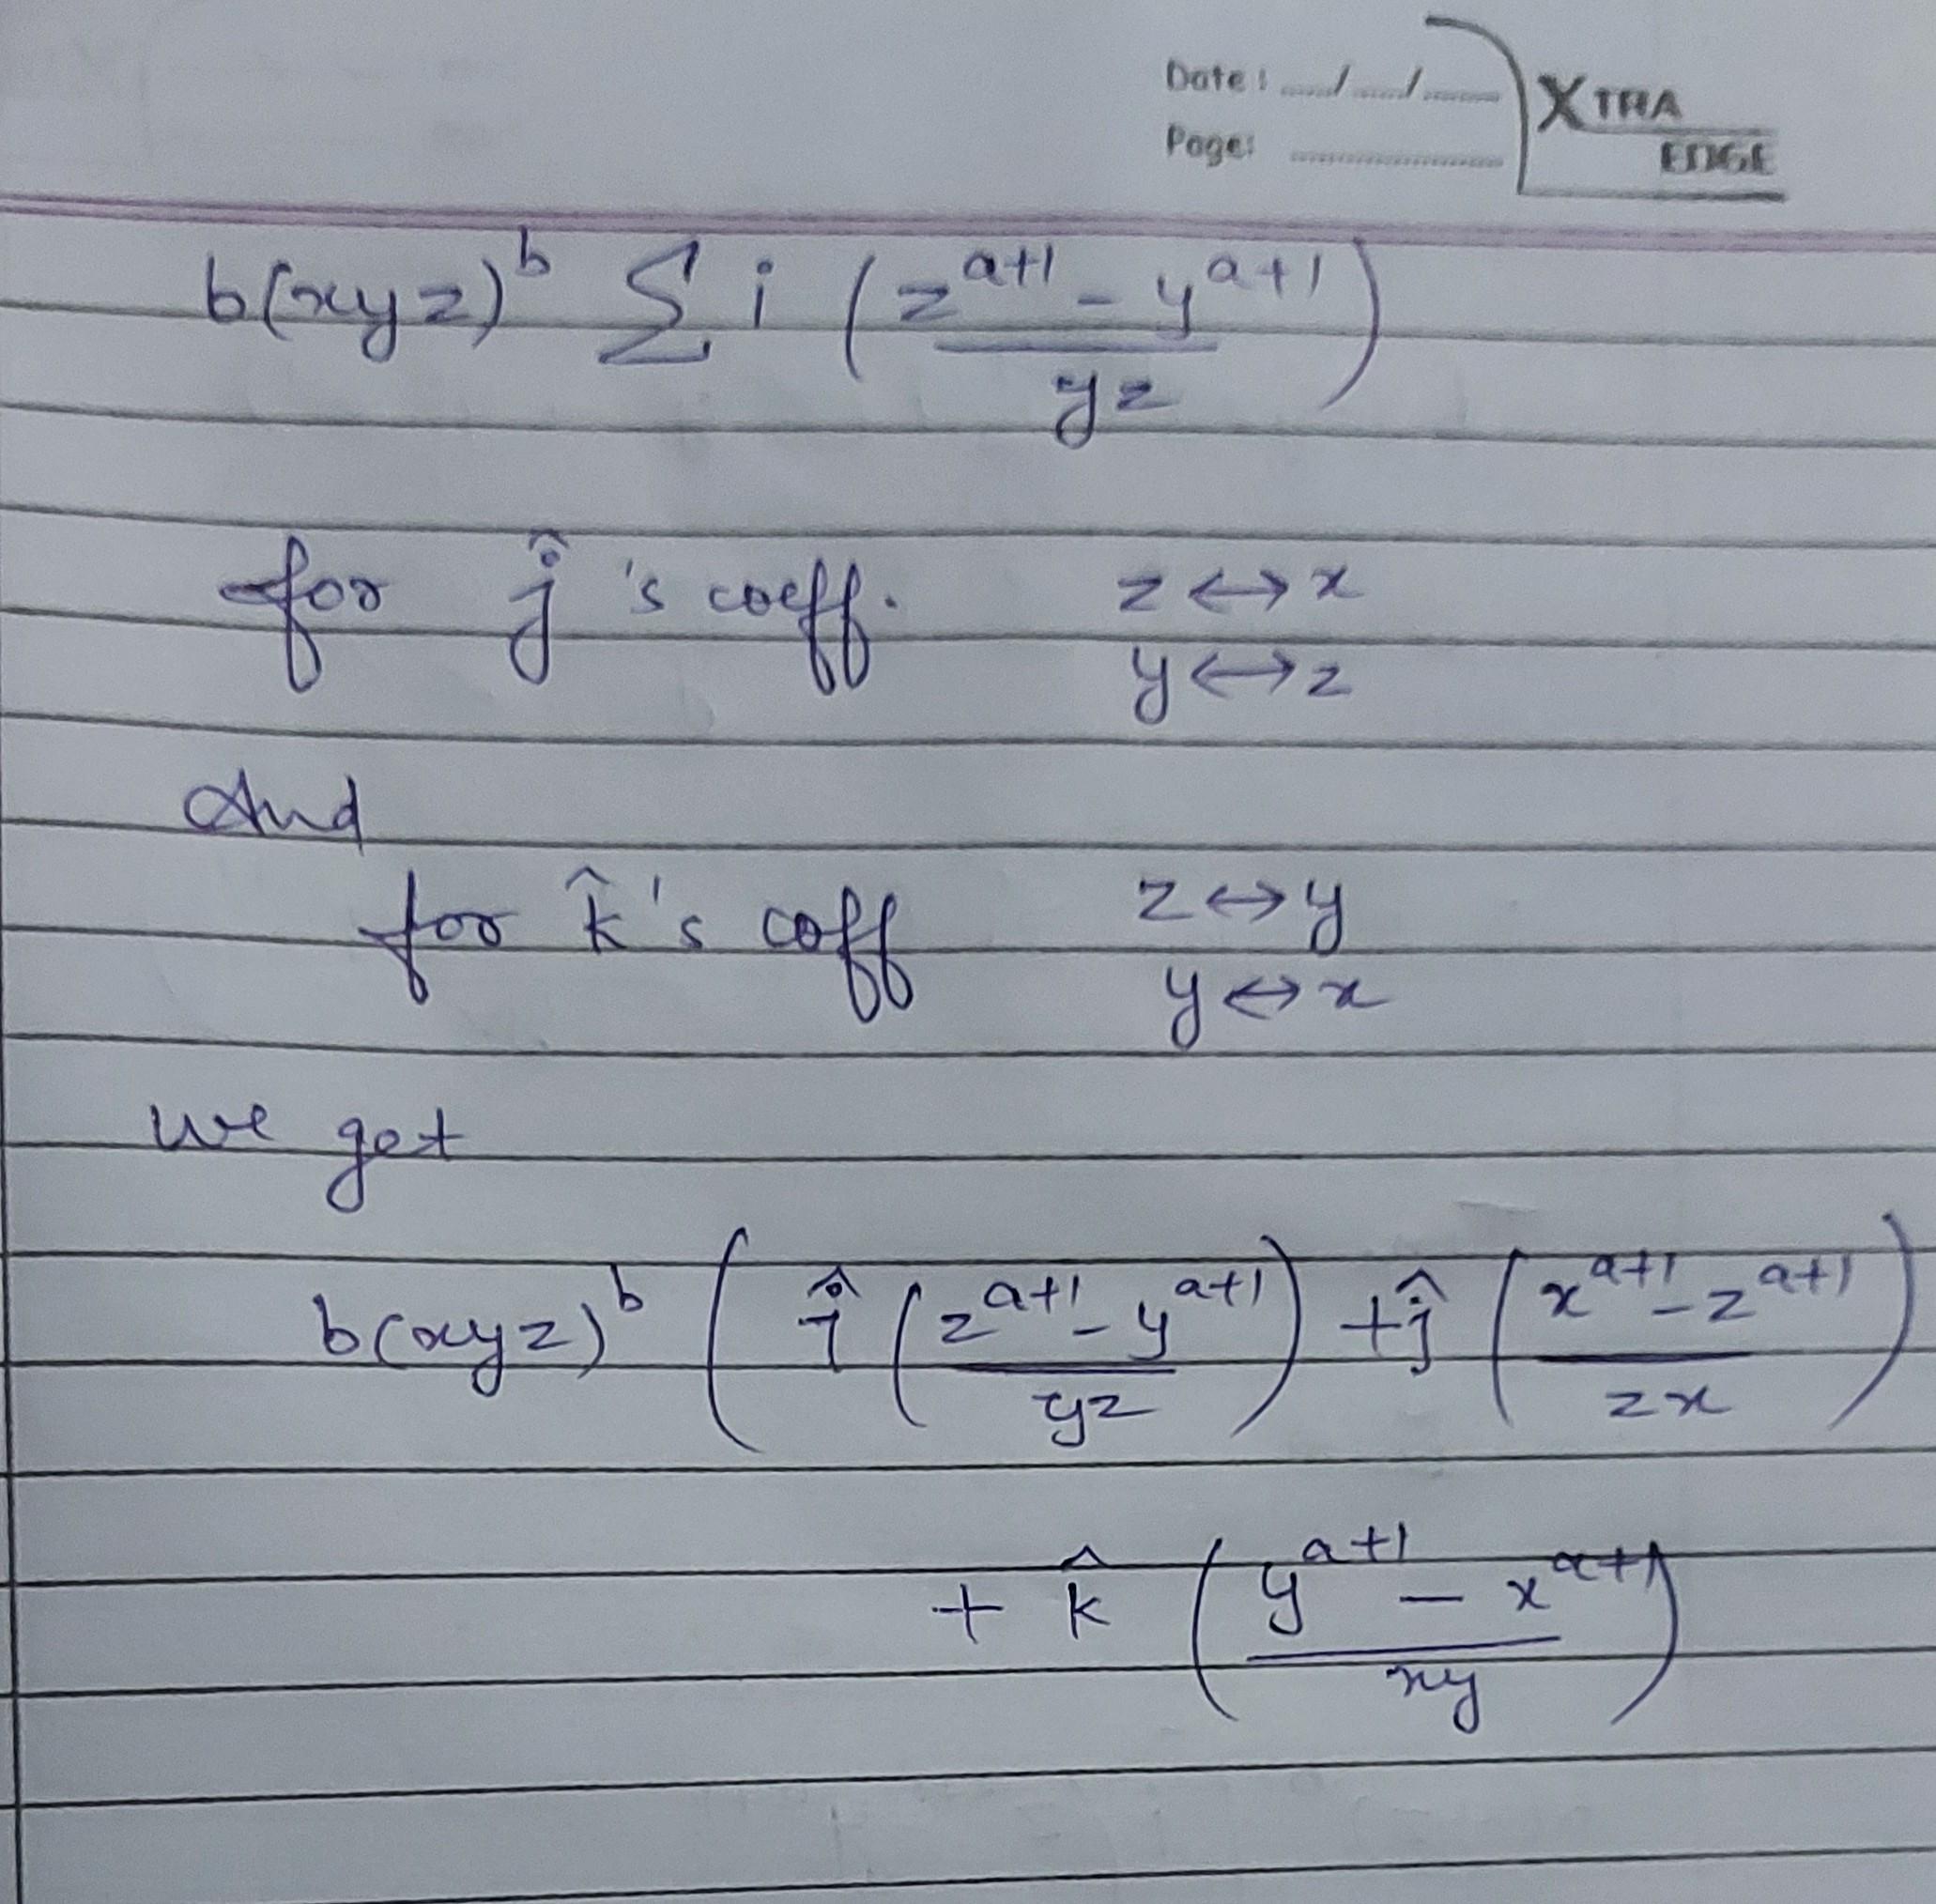 Date: ..../..../........
Page: ....................
XTRA
EDGE
b(xyz)^b Σ i (z^{a+1} - y^{a+1} / yz)
for ĵ's coeff. z ↔ x
y ↔ z
And
for k̂'s coff z ↔ y
y ↔ x
we get
b(xyz)^b ( î (z^{a+1} - y^{a+1} / yz) + ĵ (x^{a+1} - z^{a+1} / zx)
+ k̂ (y^{a+1} - x^{a+1} / xy)